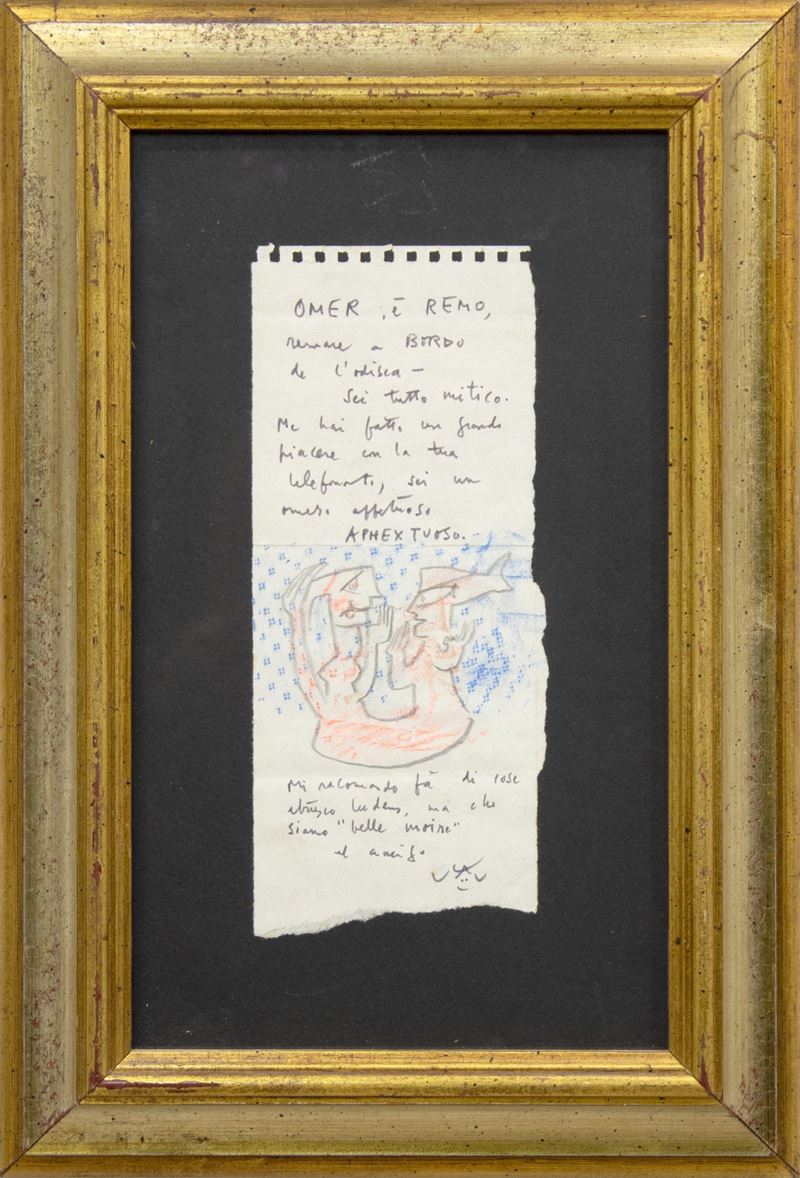 OMER, è REMO,
remare a BORDO
de l'odisea –
sei tutto mitico.
Me hai fatto un grande
piacere con la tua
telefonata, sei un
omero affettuoso
APHEXTUOSO.
Mi racomando fà di cose
etrusco ludens, ma che
siamo "belle
el